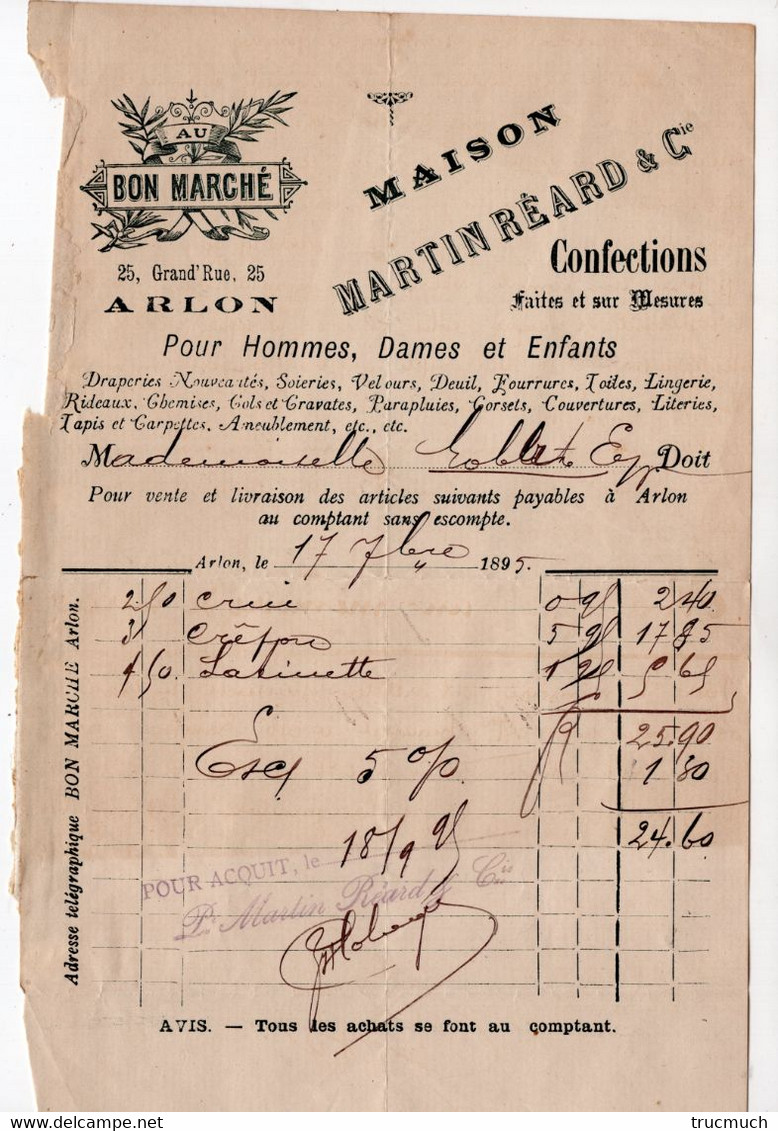 AU
BON MARCHÉ
25, Grand'Rue, 25
ARLON
MAISON
MARTIN RÉARD & Cie
Confections
Faites et sur Mesures
Pour Hommes, Dames et Enfants
Draperies Nouveautés, Soieries, Velours, Deuil, Fourrures, Toiles, Lingerie,
Rideaux, Chemises, Cols et Cravates, Parapluies, Corsets, Couvertures, Literies,
Tapis et Carpettes, Ameublement, etc., etc.
Mademoiselle Doit
Pour vente et livraison des articles suivants payables à Arlon
au comptant sans escompte.
Arlon, le 17 7bre 1895.
2 50 0 95 2 40
3 5 95 17 85
4 50 Satinette 1 25 5 65
25.90
Esc 5 % 1 30
24.60
18/9 95
POUR ACQUIT, le
Pr Martin Réard & Cie
Adresse télégraphique BON MARCHE Arlon.
AVIS. — Tous les achats se font au comptant.
delcampe.net
trucmuch